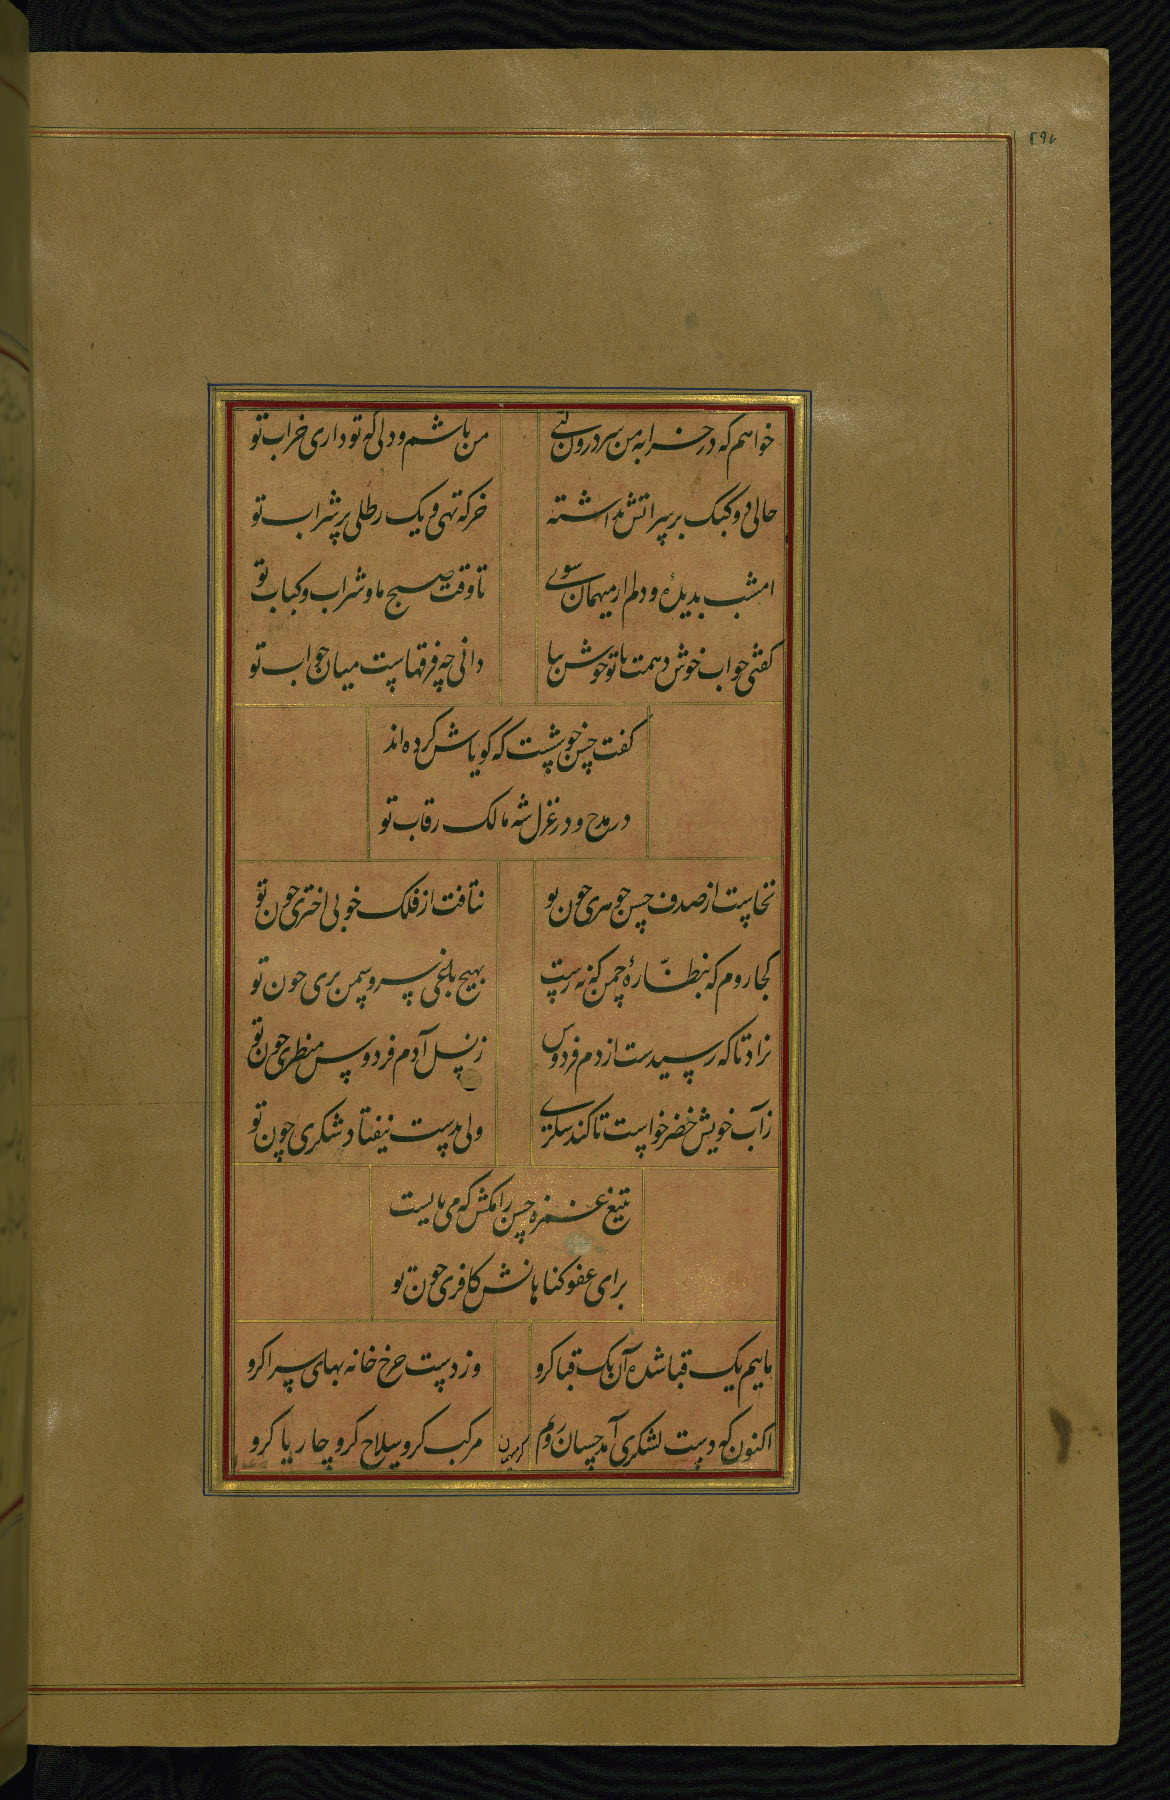 ۲۹۷
خواهم که در خرابه من سر درون نهی من باشم و دلی که تو داری خراب تو
حالی دو کبک بر سر آتش بداشته خرکه تهی و یک رطلی پر شراب تو
امشب بدیده و دلم ار میهمان شوی تا وقت صبح ما و شراب و کباب تو
گفتی جواب خوش دهمت با تو خوش بیا دانی چه فرقهاست میان جواب تو
گفت حسن خوشست که گویاش کرده‌اند
در مدح و در غزل شه مالک رقاب تو
نخاست از صدف حسن جوهری چون تو نتافت از فلک خوبی اختری چون تو
کجا روم که بنظارهٔ چمن که نه رست بهیچ باغی سرو سمن بری چون تو
نزاد تا که رسیدست از دم فردوس ز نسل آدم فردوس منظری چون تو
ز آب خویش خضر خواست تا کند شکری ولی بدست نیفتاد شکری چون تو
بتیغ غمزه حسن را مکش که می بایست
برای عفو گناهانش کافری چون تو
ماییم یک قبا شده آن یک قبا گرو وز دست چرخ خانه بهای سرا گرو
اکنون که دست لشکری آمد حسان روم مرکب گرو سلاح گرو چار پا گرو